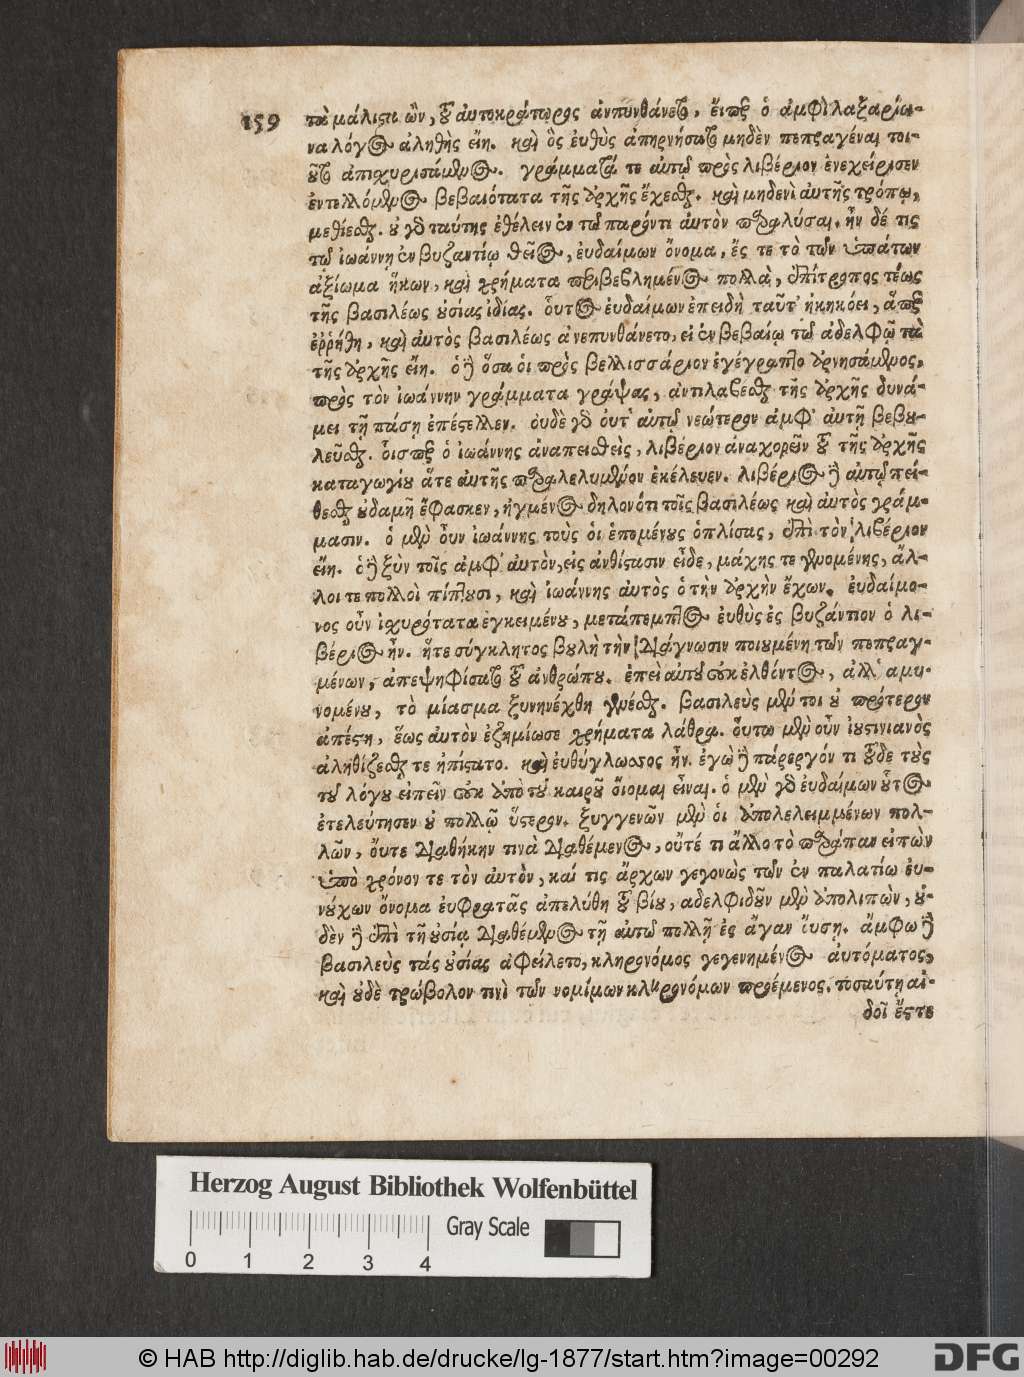 159 τὰ μάλιστα ὢν, τοῦ αὐτοκράτορος ἀνπυνθάνετο, εἴπερ ὁ ἀμφὶ λαξαρίω-
να λόγος ἀληθὴς εἴη. καὶ ὃς εὐθὺς ἀπηρνήσατο μηδὲν πεπραγέναι τοι-
οῦτο ἀπιχυρισάμενος. γράμματά τε αὐτῷ πρὸς λιβέριον ἐνεχείρισεν
ἐντελλόμενος βεβαιότατα τῆς ἀρχῆς ἔχεσθαι. καὶ μηδενὶ αὐτῆς τρόπῳ,
μεθίεσθαι. οὐ γὰρ ταύτης ἐθέλειν ἐν τῷ παρόντι αὐτὸν παραλύσαι. ἦν δέ τις
τῷ ἰωάννῃ ἐν βυζαντίῳ θεῖος, εὐδαίμων ὄνομα, ἔς τε τὸ τῶν ὑπάτων
ἀξίωμα ἥκων, καὶ χρήματα περιβεβλημένος πολλὰ, ἐπίτροπος τέως
τῆς βασιλέως οὐσίας ἰδίας. οὗτος εὐδαίμων ἐπειδὴ ταῦτ' ἠκηκόει, ἅπερ
ἐῤῥήθη, καὶ αὐτὸς βασιλέως ἀνεπυνθάνετο, εἰ ἐν βεβαίῳ τῷ ἀδελφῷ τὰ
τῆς ἀρχῆς εἴη. ὁ δὲ ὅσα οἱ πρὸς βελλισσάριον ἐγέγραπτο ἀρνησάμενος,
πρὸς τὸν ἰωάννην γράμματα γράψας, ἀντιλαβέσθαι τῆς ἀρχῆς δυνά-
μει τῇ πάσῃ ἐπέστελλεν. οὐδὲ γὰρ οὐτ' αὐτῷ νεώτερον ἀμφ' αὐτῇ βεβου-
λεῦσθαι. οἷσπερ ὁ ἰωάννης ἀναπεισθεὶς, λιβέριον ἀναχορεῖν τοῦ τῆς ἀρχῆς
καταγωγίου ἅτε αὐτῆς παραλελυμένον ἐκέλευεν. λιβέριος δὲ αὐτῷ πεί-
θεσθαι οὐδαμῆ ἔφασκεν, ἡγμένος δηλονότι τοῖς βασιλέως καὶ αὐτὸς γράμ-
μασιν. ὁ μὲν οὖν ἰωάννης τοὺς οἱ ἑπομένους ὁπλίσας, ἐπὶ τὸν λιβέριον
εἴη. ὁ δὲ ξὺν τοῖς ἀμφ' αὐτὸν, εἰς ἀνθίστασιν εἶδε, μάχης τε γενομένης, ἄλ-
λοι τε πολλοὶ πίπτουσι, καὶ ἰωάννης αὐτὸς ὁ τὴν ἀρχὴν ἔχων. εὐδαίμο-
νος οὖν ἰχυρότατα ἐγκειμένου, μετάπεμπτος εὐθὺς ἐς βυζάντιον ὁ λι-
βέριος ἦν. ἥτε σύγκλητος βουλὴ τὴν διάγνωσιν ποιουμένη τῶν πεπραγ-
μένων, ἀπεψηφίσατο τοῦ ἀνθρώπου. ἐπεὶ αὐτοῦ οὐκ ἐλθόντος, ἀλλ' αμυ-
νομένου, τὸ μίασμα ξυνηνέχθη γενέσθαι. βασιλεὺς μέν τοι οὐ πρότερον
ἀπέστη, ἕως αὐτὸν ἐζημίωσε χρήματα λάθρα. οὕτω μὲν οὖν ἰουστινιανὸς
ἀληθίζεσθαί τε ἠπίστατο. καὶ εὐθύγλωσσος ἦν. ἐγὼ δὲ πάρεργόν τι τοῦδε τοὺς
τοῦ λόγου εἰπεῖν οὐκ ἀπὸ τοῦ καιροῦ οἴομαι εἶναι. ὁ μὲν γὰρ εὐδαίμων οὗτος
ἐτελεύτησεν οὐ πολλῷ ὕστερον. ξυγγενῶν μὲν οἱ ἀπολελειμμένων πολ-
λῶν, οὔτε διαθήκην τινὰ διαθέμενος, οὔτέ τι ἄλλο τὸ παράπαν εἰπὼν
ὑπὸ χρόνον τε τὸν αὐτὸν, καί τις ἄρχων γεγονὼς τῶν ἐν παλατίῳ εὐ-
νούχων ὄνομα εὐφρατᾶς ἀπελύθη τοῦ βίου, αδελφιδοῦν μὲν ἀπολιπὼν, οὐ-
δὲν δὲ ἐπὶ τῇ οὐσίᾳ διαθέμενος τῇ αὐτῷ πολλῇ ἐς ἄγαν ἴυσῃ. ἄμφω δὲ
βασιλεὺς τάς οὐσίας ἀφείλετο, κληρονόμος γεγενημένος αὐτόματος,
καὶ οὐδὲ τρώβολον τινὶ τῶν νομίμων κληρονόμων προέμενος. τοσαύτῃ αἰ-
δοῖ ἔς τε
Herzog August Bibliothek Wolfenbüttel
Gray Scale
0 1 2 3 4
© HAB http://diglib.hab.de/drucke/lg-1877/start.htm?image=00292
DFG